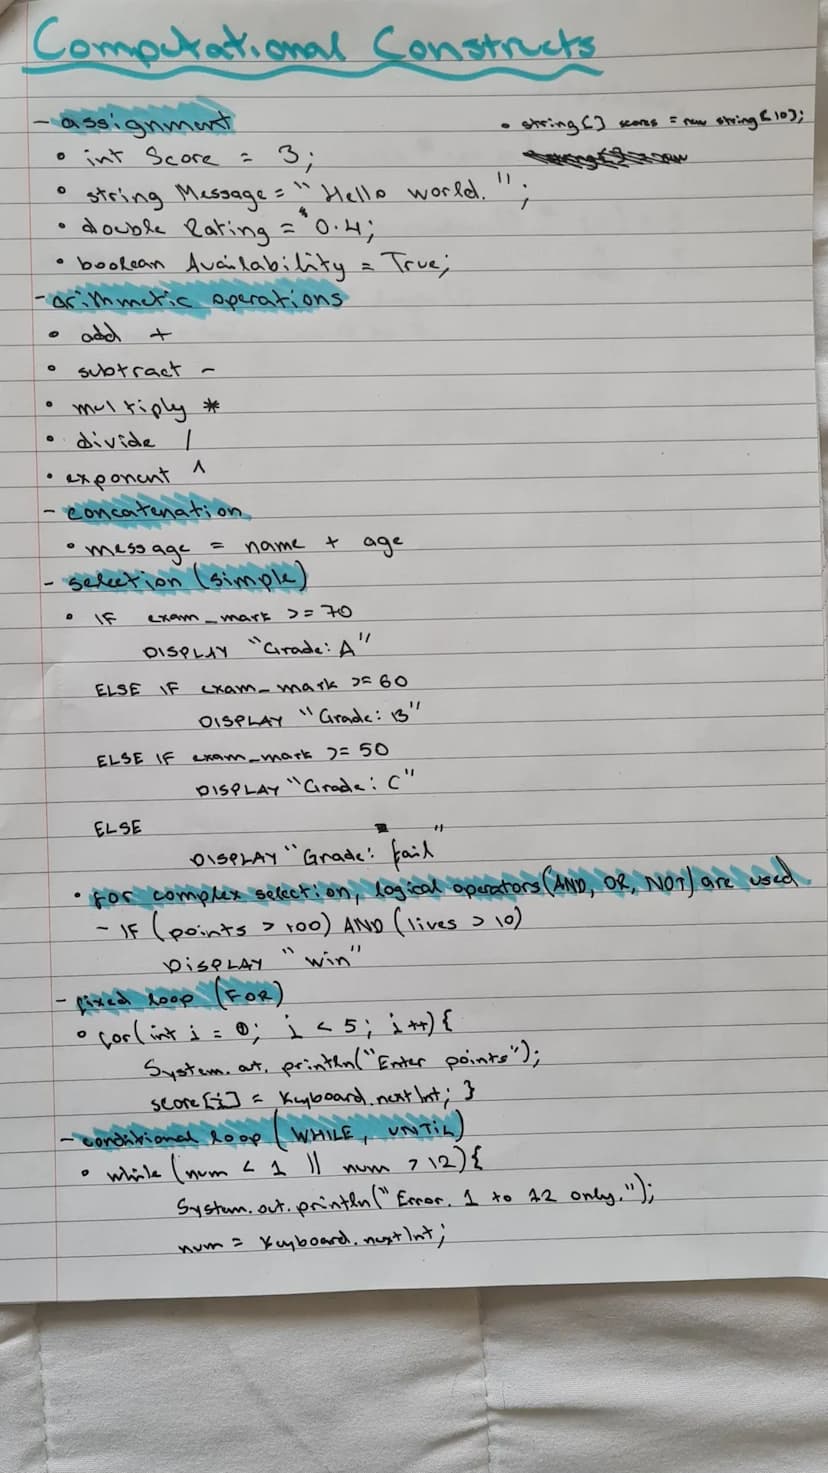 Computational Constructs
- assignment
• string[] scores = new string[10];
• int Score = 3;
• string Message = "Hello world.";
• double Rating = 0.4;
• boolean Availability = True;
- arithmetic operations
• add +
• subtract -
• multiply *
• divide /
• exponent ^
- concatenation
• message = name + age
- selection (simple)
• IF exam_mark >= 70
DISPLAY "Grade: A"
ELSE IF exam_mark >= 60
DISPLAY "Grade: B"
ELSE IF exam_mark >= 50
DISPLAY "Grade: C"
ELSE
DISPLAY "Grade: fail"
• For complex selection, logical operators (AND, OR, NOT) are used
- IF (points > 100) AND (lives > 10)
DISPLAY "win"
- fixed loop (FOR)
• for(int i = 0; i < 5; i++){
System.out.println("Enter points");
score[i] = Keyboard.nextInt; }
- conditional loop (WHILE, UNTIL)
• while (num < 1 || num > 12){
System.out.println("Error. 1 to 12 only.");
num = Keyboard.nextInt;